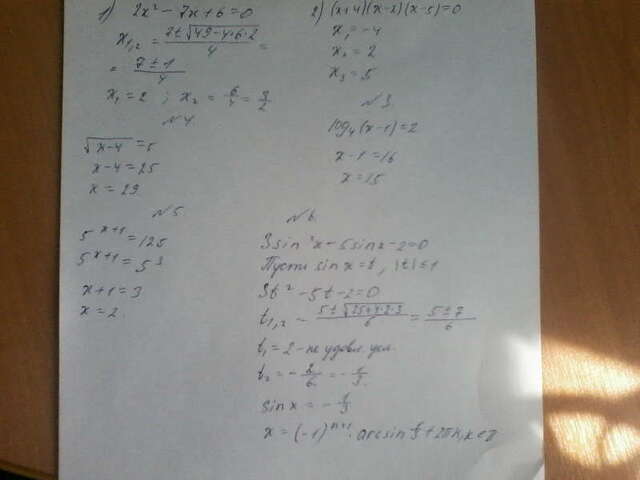 1) 2x² - 7x + 6 = 0
x₁,₂ = (7 ± √(49 - 4·6·2))/4 =
= (7 ± 1)/4
x₁ = 2 ; x₂ = 6/4 = 3/2
2) (x+4)(x-2)(x-5) = 0
x₁ = -4
x₂ = 2
x₃ = 5
№3
log₄(x-1) = 2
x - 1 = 16
x = 15
№4
√(x-4) = 5
x - 4 = 25
x = 29
№5
5^(x+1) = 125
5^(x+1) = 5³
x + 1 = 3
x = 2
№6
3sin²x - 5sinx - 2 = 0
Пусть sinx = t, |t| ≤ 1
3t² - 5t - 2 = 0
t₁,₂ = (5 ± √(25+4·2·3))/6 = (5 ± 7)/6
t₁ = 2 - не удовл. усл.
t₂ = -2/6 = -1/3
sinx = -1/3
x = (-1)ⁿ⁺¹ · arcsin 1/3 + 2πn, n ∈ Z